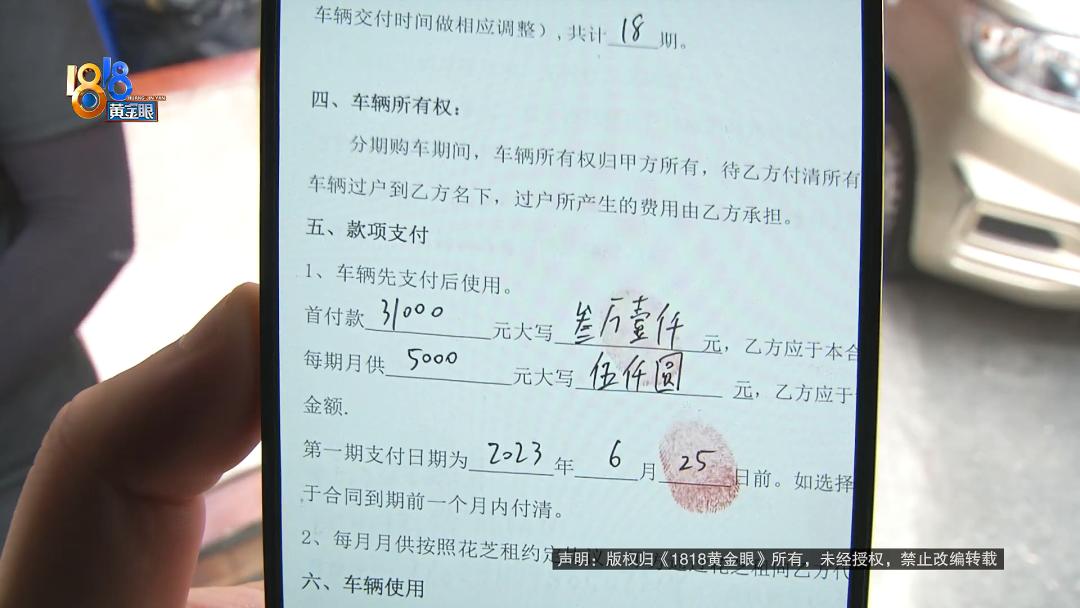 1818
HUANG JIN YAN
黄金眼
车辆交付时间做相应调整）,共计 18 期。
四、车辆所有权：
分期购车期间，车辆所有权归甲方所有，待乙方付清所有
车辆过户到乙方名下，过户所产生的费用由乙方承担。
五、款项支付
1、车辆先支付后使用。
首付款 31000 元大写 叁万壹仟 元，乙方应于本合
每期月供 5000 元大写 伍仟圆 元，乙方应于
金额.
第一期支付日期为 2023 年 6 月 25 日前。如选择
于合同到期前一个月内付清。
2、每月月供按照花芝租约定
声明：版权归《1818黄金眼》所有，未经授权，禁止改编转载
六、车辆使用